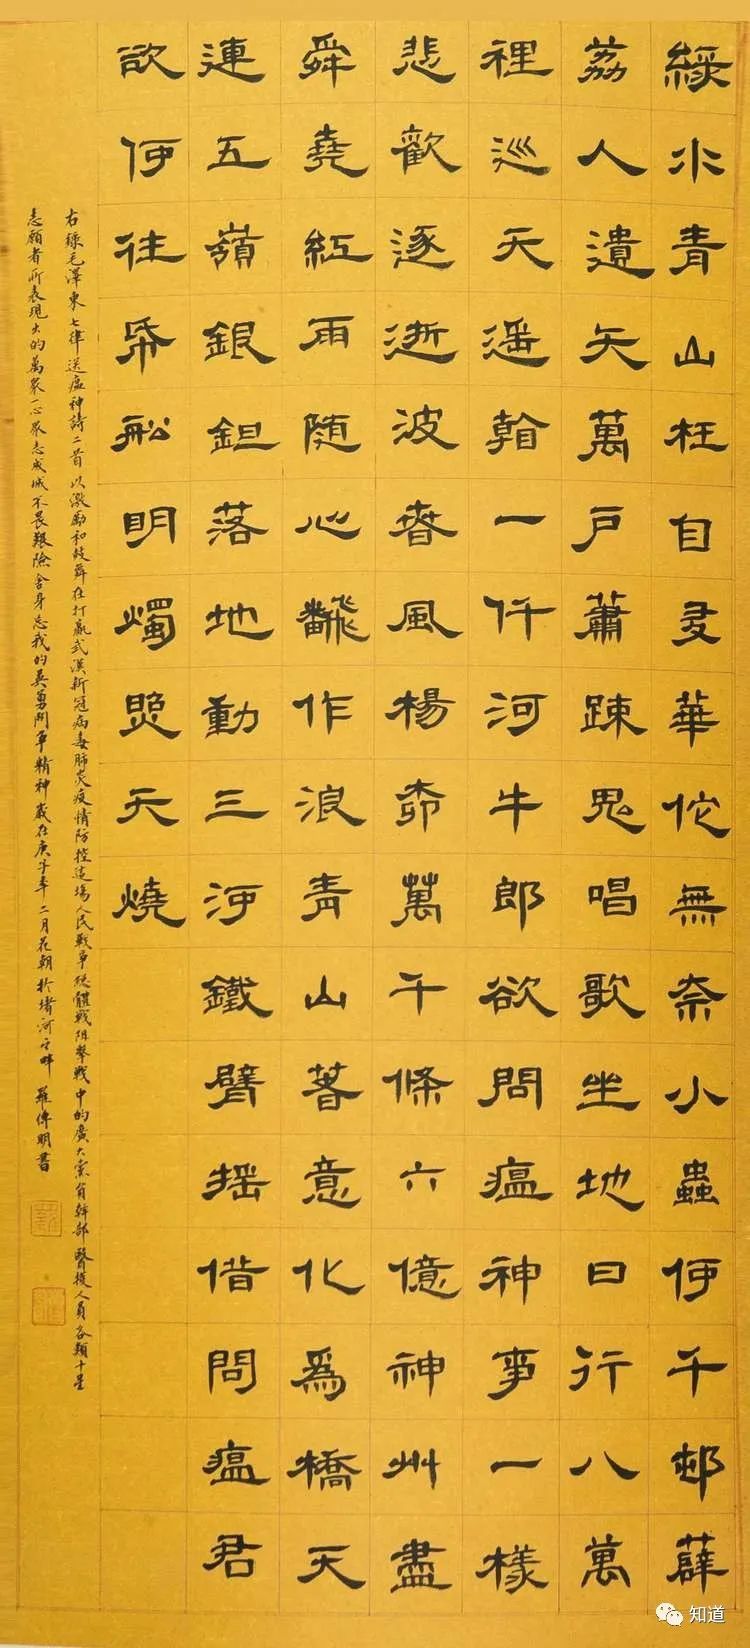 綠水青山枉自多華佗無奈小蟲何千邨薜
荔人遺矢萬戶蕭疎鬼唱歌坐地日行八萬
裡巡天遥看一仟河牛郎欲問瘟神事一樣
悲歡逐逝波春風楊柳萬千條六億神州盡
舜堯紅雨随心飜作浪青山着意化為橋天
連五嶺銀鉏落地動三河鐵臂摇借問瘟君
欲何往帋船明燭照天燒
右錄毛澤東七律送瘟神詩二首以激勵和鼓舞在打贏武漢新冠病毒肺炎疫情防控這場人民戰争總體戰阻擊戰中的廣大黨員幹部醫護人員各類
志願者所表現出的萬衆一心衆志成城不畏艱險舍身忘我的英勇鬥争精神歲在庚子年二月花朝於堵河之畔羅傳明書
知道